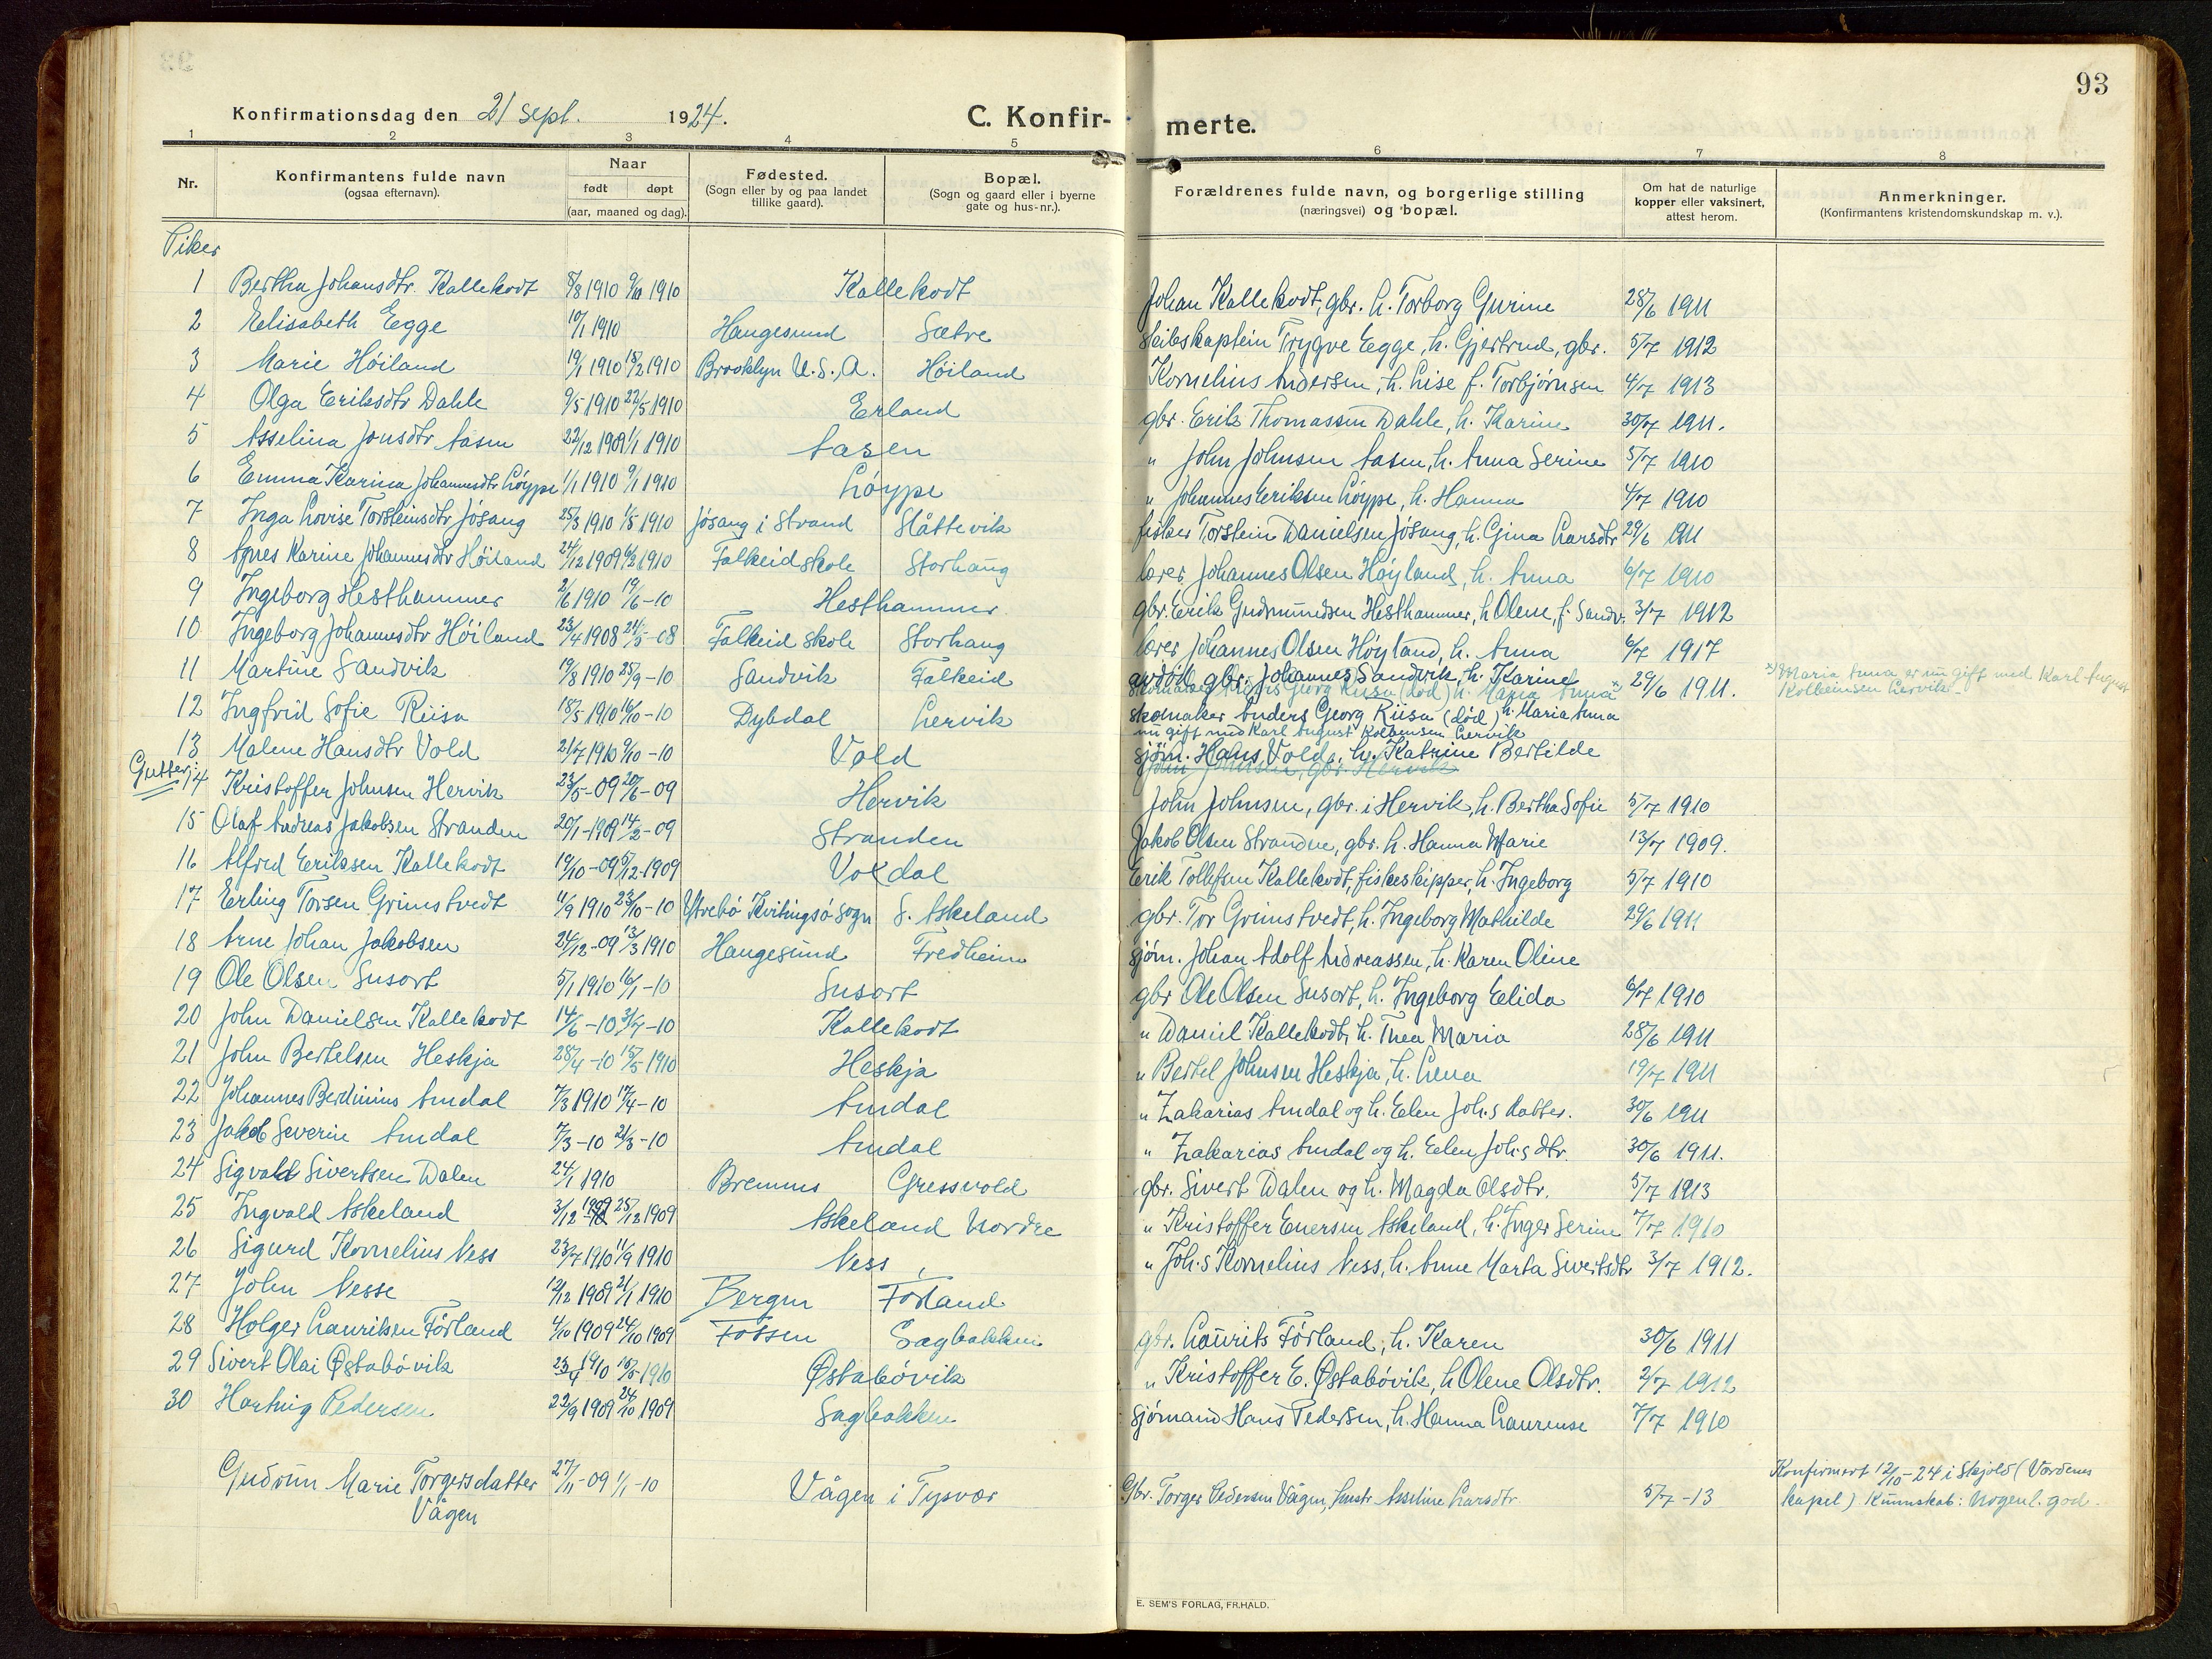 93
Konfirmationsdag den 21 sept. 1924.
C. Konfirmerte.
1 2 3 4 5 6 7 8
Nr.
Konfirmantens fulde navn
(ogsaa efternavn).
Naar
født døpt
(aar, maaned og dag).
Fødested.
(Sogn eller by og paa landet
tillike gaard).
Bopæl.
(Sogn og gaard eller i byerne
gate og hus-nr.).
Forældrenes fulde navn, og borgerlige stilling
(næringsvei) og bopæl.
Om hat de naturlige
kopper eller vaksinert,
attest herom.
Anmerkninger.
(Konfirmantens kristendomskundskap m. v.).
Piker
1 Bertha Johansdtr. Kallekodt 8/8 1910 9/10 1910 Kallekodt Johan Kallekodt, gbr. h. Torborg Gurine 28/6 1911
2 Elisabeth Egge 10/1 1910 Haugesund Sætre Seilskaptein Trygve Egge, h. Gjertrud, gbr. 5/7 1912
3 Marie Høiland 19/1 1910 18/2 1910 Brooklyn U.S.A. Høiland Kornelius Andersen, h. Lise f. Torbjørnsen 4/7 1913
4 Olga Eriksdtr Dahle 9/5 1910 22/5 1910 Erland gbr. Erik Thomassen Dahle, h. Karine 30/7 1911.
5 Asselina Jonsdtr Aasen 22/12 1909 1/1 1910 Aasen " John Johnsen Aasen, h. Anna Serine 5/7 1910
6 Emma Karina Johannesdtr Løype 1/1 1910 9/1 1910 Løype " Johannes Eriksen Løype, h. Hanna 4/7 1910
7 Inga Lovise Torsteinsdtr Jøsang 25/3 1910 1/5 1910 Jøsang i Strand Slåttevik fisker Torstein Danielsen Jøsang, h. Gina Larsdtr 29/6 1911
8 Agnes Karine Johannesdtr Høiland 24/12 1909 6/2 1910 Falkeid skole Storhaug lærer Johannes Olsen Høyland, h. Anna 6/7 1910
9 Ingeborg Hesthammer 2/6 1910 19/6-10 Hesthammer gbr. Erik Gudmundsen Hesthammer, h Olene, f. Sandv. 3/7 1912
10 Ingeborg Johannesdtr Høiland 23/4 1908 24/5-08 Falkeid skole Storhaug lærer Johannes Olsen Høyland, h. Anna 6/7 1917
11 Martine Sandvik 19/8 1910 25/9-10 Sandvik Falkeid avdød gbr. Johannes Sandvik, h. Karine 29/6 1911.
x) Maria Anna er nu gift med Karl August
Kolbeinsen Lervik.
12 Ingfrid Sofie Riisa 18/5 1910 16/10-10 Dybdal Lervik skomaker Anders Georg Riisa (død) h. Maria Anna
nu gift med Karl August Kolbeinsen Lervik
13 Malene Hansdtr Vold 21/7 1910 9/10-10 Vold sjøm. Hans Vold, h. Katrine Bertilde
John Johnsen, gbr. Hervik
Gutter:
14 Kristoffer Johnsen Hervik 23/5-09 20/6-09 Hervik John Johnsen, gbr. i Hervik, h. Bertha Sofie 5/7 1910
15 Olaf Andreas Jakobsen Stranden 20/1-1909 14/2-09 Stranden Jakob Olsen Stranden, gbr. h. Hanna Marie 13/7 1909.
16 Alfred Eriksen Kallekodt 19/10-09 5/12-1909 Voxdal Erik Tollefsen Kallekodt, fiskeskipper, h. Ingeborg 5/7 1910
17 Erling Torsen Grimstvedt 11/9 1910 23/10-10 Ytrebø Kvitingsø sogn S. Askeland gbr. Tor Grimstvedt, h. Ingeborg Mathilde 29/6 1911
18 Arne Johan Jakobsen 24/12-09 13/3 1910 Haugesund Fredheim sjøm. Johan Adolf Andreassen, h. Karen Oline
19 Ole Olsen Susort 5/1 1910 16/1-10 Susort gbr Ole Olsen Susort, h. Ingeborg Elida 6/7 1910
20 John Danielsen Kallekodt 14/6-10 3/7-10 Kallekodt " Daniel Kallekodt, h. Thea Maria 28/6 1911
21 John Bertelsen Heskja 28/4-10 15/5 1910 Heskja " Bertel Johnsen Heskja, h. Lena 19/7 1911
22 Johannes Berdinius Amdal 7/3 1910 17/4-10 Amdal " Zakarias Amdal og h. Elen Johs datter. 30/6 1911
23 Jakob Severin Amdal 7/3-10 21/3-10 Amdal " Zakarias Amdal og h. Elen Johs dtr. 30/6 1911.
24 Sigvald Sivertsen Dalen 24/1 1910 Bremnes Gressvold gbr. Sivert Dalen og h. Magda Olsdtr. 5/7 1913
25 Ingvald Askeland 3/12 1909 25/12 1909 Askeland Nordre " Kristoffer Enersen Askeland, h. Inger Serine 7/7 1910
26 Sigurd Kornelius Ness 23/7 1910 11/9 1910 Ness " Johs Kornelius Ness, h. Anne Marta Sivertsdtr 3/7 1912.
27 John Nesse 12/12 1909 21/1 1910 Bergen Førland
28 Holger Lauritsen Førland 4/10 1909 24/10 1909 Fossen Sagbakken gbr. Laurits Førland, h. Karen 30/6 1911
29 Sivert Olai Østabøvik 23/4 1910 16/5 1910 Østabøvik " Kristoffer E. Østabøvik, h Olene Olsdtr. 2/7 1912
30 Hartvig Pedersen 22/9 1909 24/10 1909 Sagbakken Sjømand Hans Pedersen, h. Hanna Laurense 7/7 1910
Gudrun Marie Torgersdatter 27/11-09 1/1-10 Vågen i Tysvær Gbr. Torger Pedersen Vågen, hustr. Asseline Larsdtr 5/7-13
Vågen
Konfirmert 12/10-24 i Skjold (Vardenes
kapel) Kunnskab: Nogenl. god.
E. SEM'S FORLAG, FR.HALD.